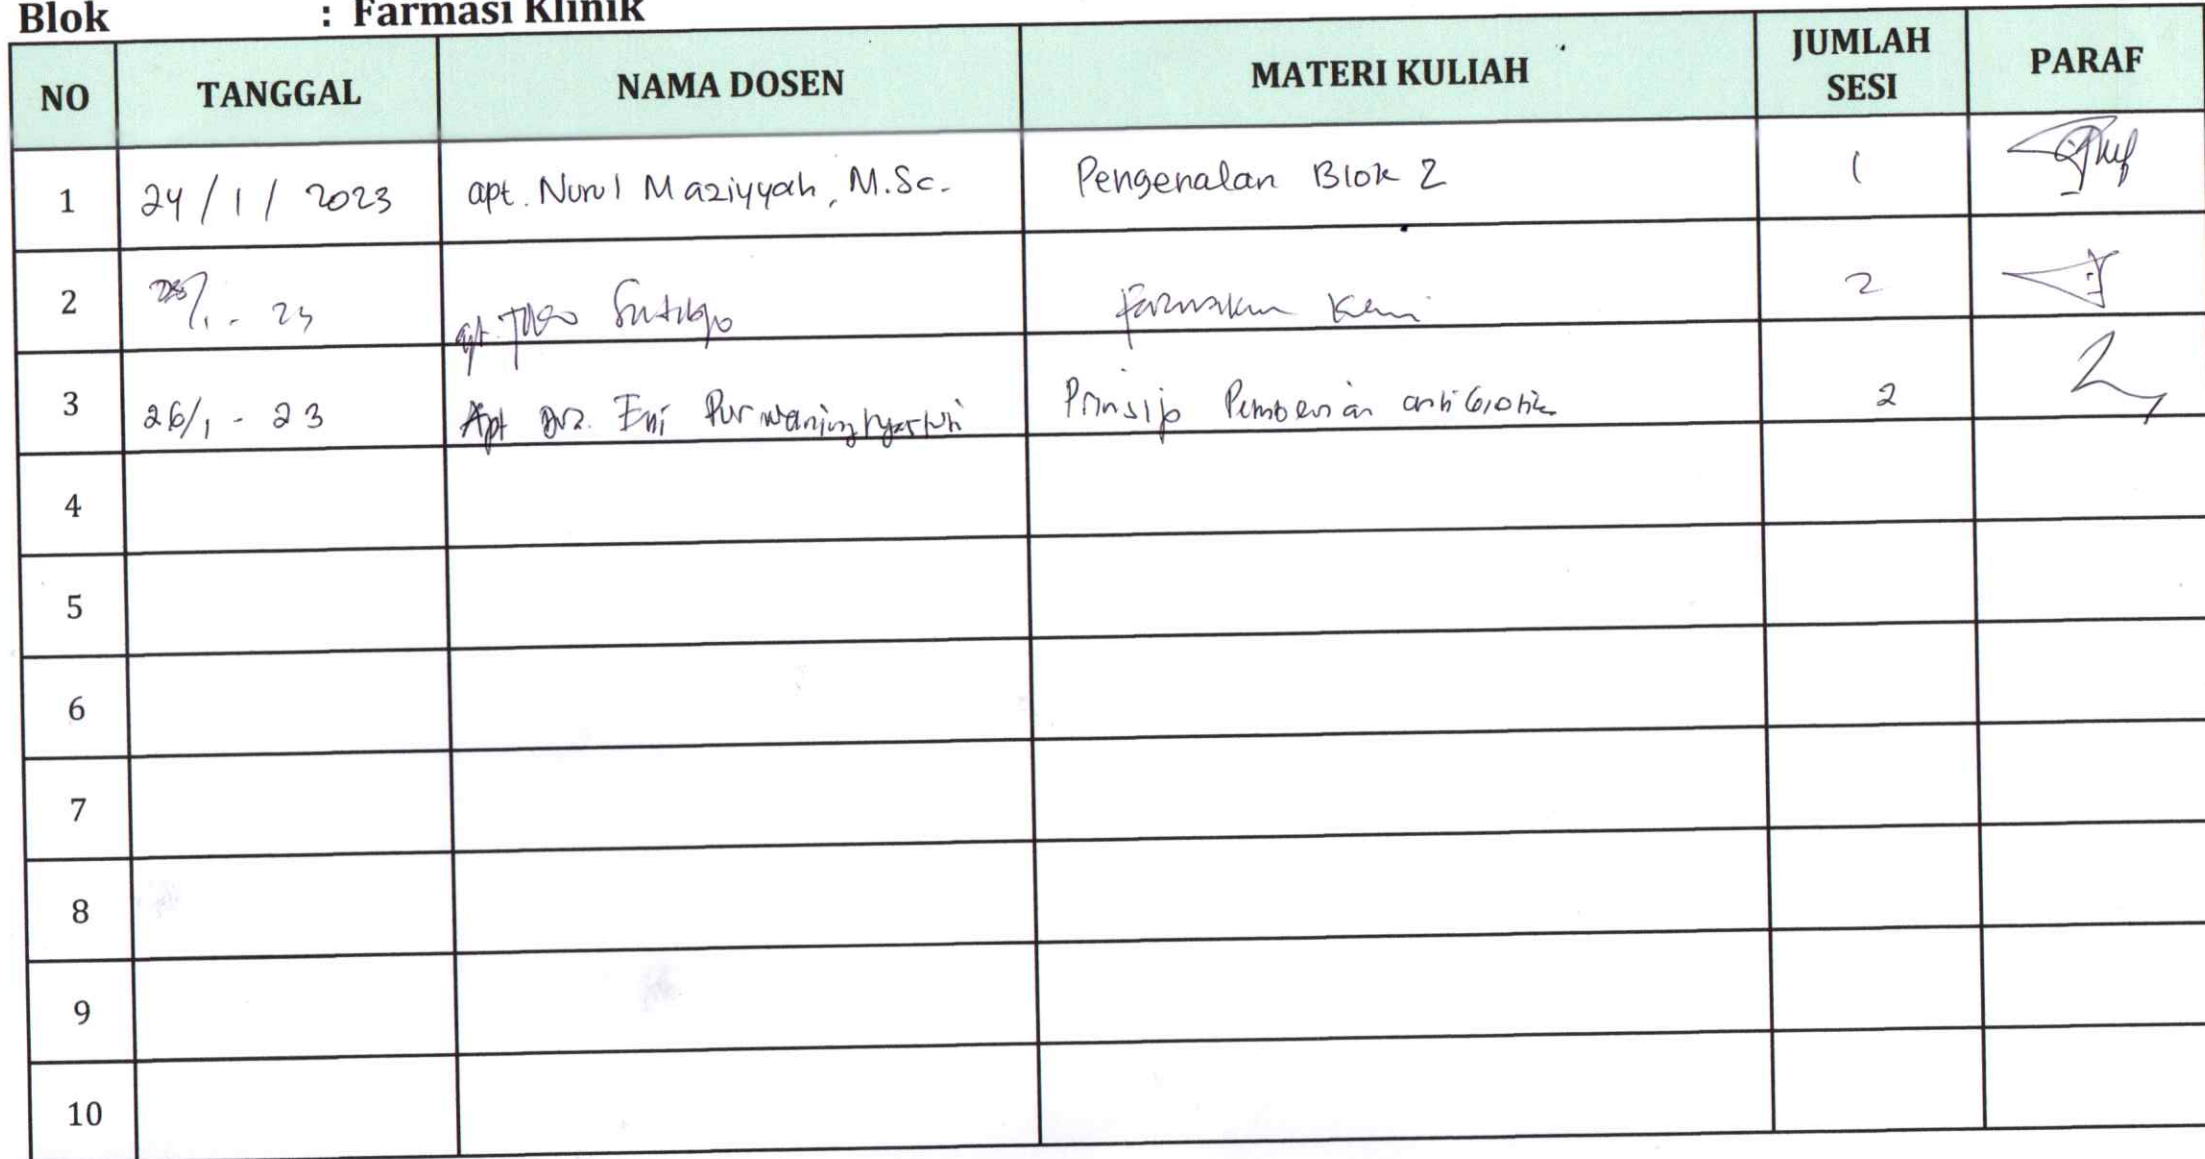 Blok : Farmasi Klinik
NO TANGGAL NAMA DOSEN MATERI KULIAH JUMLAH SESI PARAF
1 24/1/2023 apt. Nurul Maziyyah, M.Sc. Pengenalan Blok 2 1
2 apt. 2
3 26/1 - 23 Apt Dra. Eni Purwaningtyastuti Prinsip Pemberian antibiotik 2
4
5
6
7
8
9
10